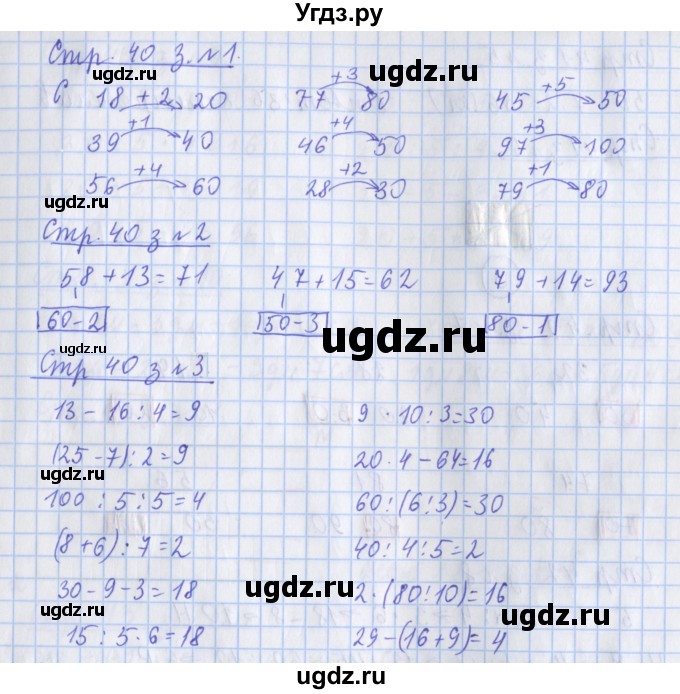 Угдз.ру
Стр. 40 з. №1.
ugdz.ru ugdz.ru
С 18 +2 20 77 +3 80 45 +5 50
39 +1 40 46 +4 50 97 +3 100
56 +4 60 28 +2 30 79 +1 80
ugdz.ru ugdz.ru
Стр. 40 з №2
58+13=71 47+15=62 79+14=93
60-2 50-3 80-1
ugdz.ru ugdz.ru ugdz.ru
Стр 40 з №3.
13-16:4=9 9·10:3=30
ugdz.ru
(25-7):2=9 20·4-64=16
ugdz.ru
100:5:5=4 60:(6:3)=30
ugdz.ru
(8+6):7=2 40:4:5=2
30-9-3=18 2·(80:10)=16
ugdz.ru ugdz.ru
15:5·6=18 29-(16+9)=4
ugdz.ru